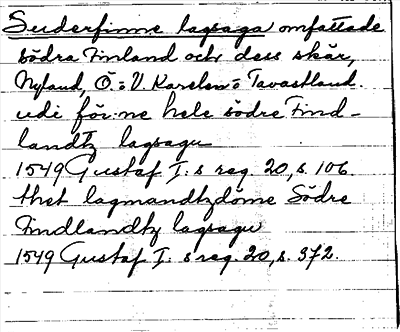 Suderfinne lagsaga omfattade
södra Finland och dess skär,
Nyland, Ö. o. V. Karelen o Tavastland.
udi för:ne hele södre Find-
landtz lagsagu
1549 Gustaf I:s reg. 20, s. 106.
thet lagmandtzdöme Södre
Findlandtz lagsagu
1549 Gustaf I:s reg. 20, s. 372.